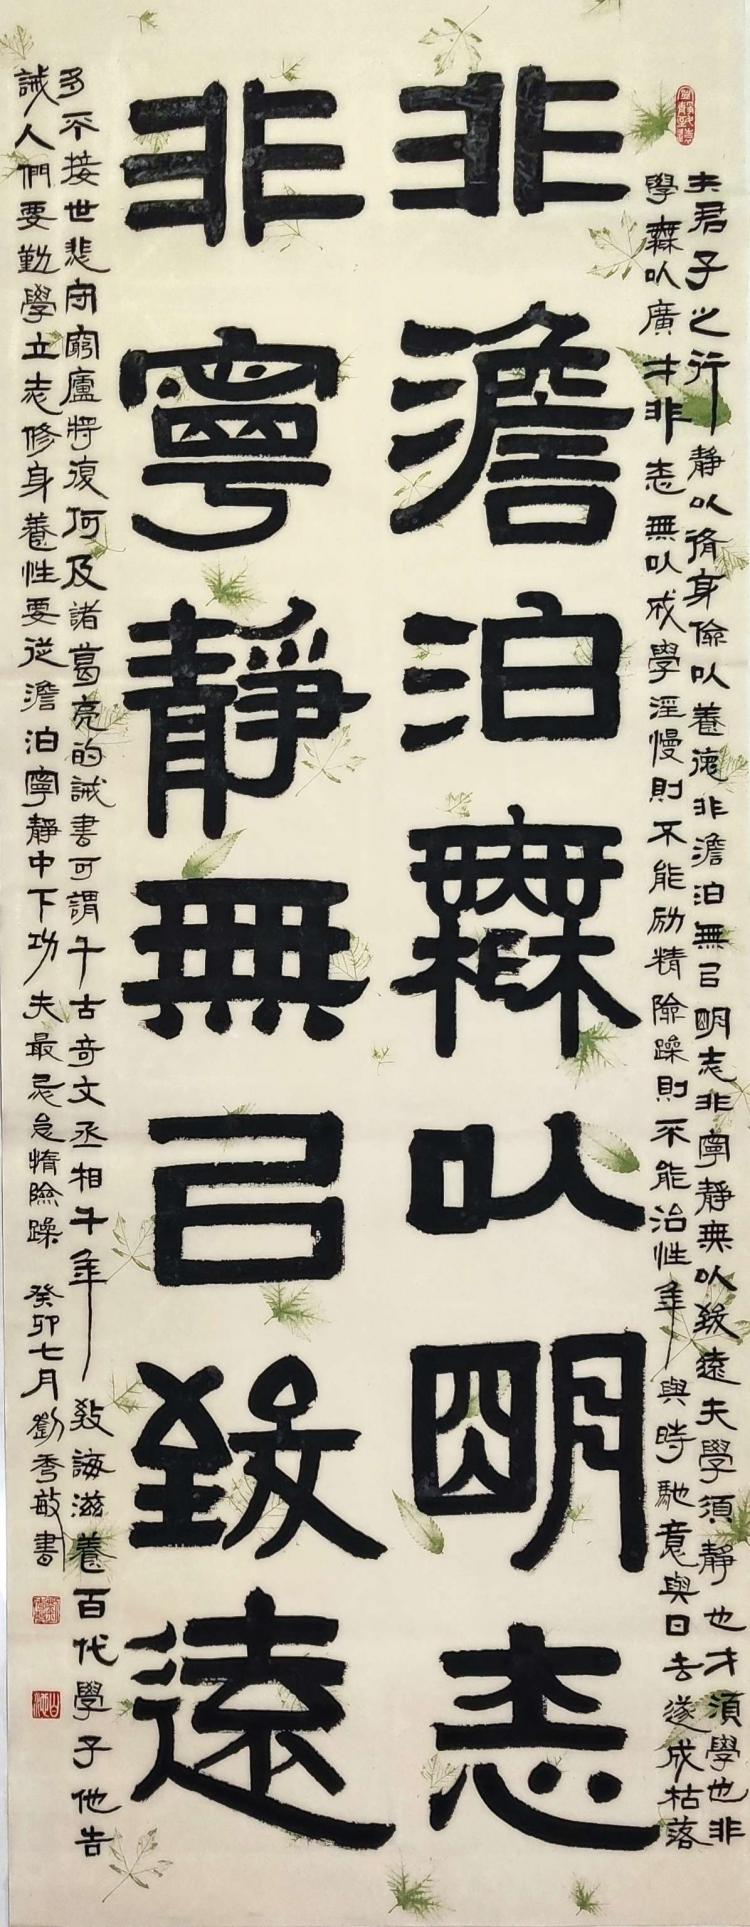 夫君子之行静以脩身儉以養德非澹泊無㠯明志非寧靜無以致遠夫學須靜也才須學也非
學無以廣才非志無以成學淫慢則不能励精險躁則不能治性年與時馳意與日去遂成枯落
非澹泊無以明志
非寧靜無㠯致遠
多不接世悲守窮廬將復何及諸葛亮的誡書可謂千古奇文丞相千年教誨滋養百代學子他告
誡人們要勤學立志修身養性要從澹泊寧靜中下功夫最忌怠惰險躁癸卯七月劉秀敏書